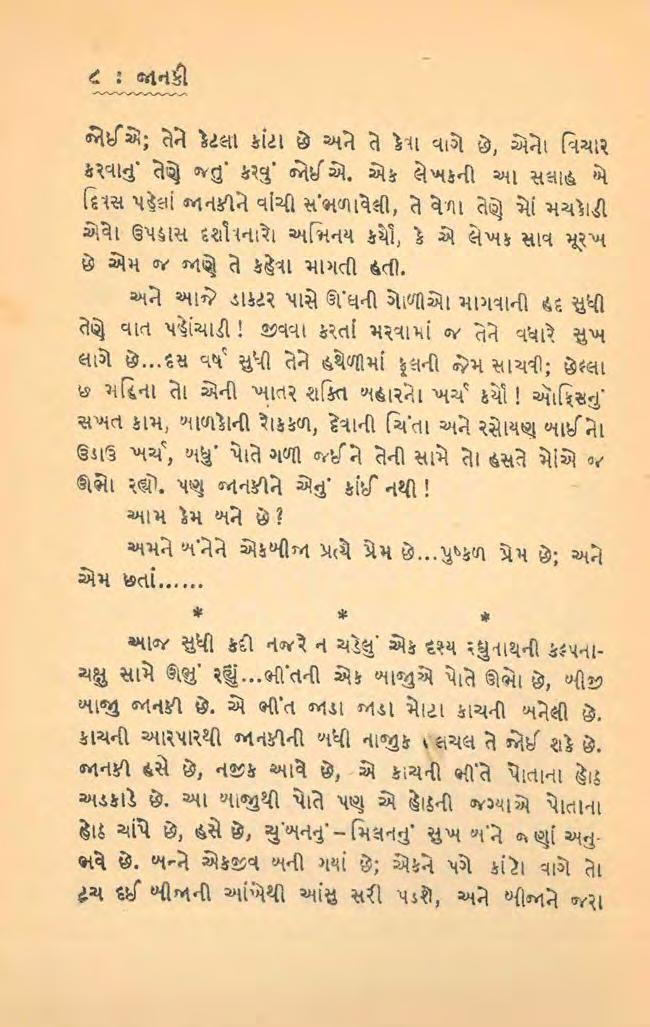 ૮ : જાનકી
જોઈએ; તેને કેટલા કાંટા છે અને તે કેવા વાગે છે, એનો વિચાર
કરવાનું તેણે જતું કરવું જોઈએ. એક લેખકની આ સલાહ બે
દિવસ પહેલાં જાનકીને વાંચી સંભળાવેલી, તે વેળા તેણે મોં મચકોડી
એવો ઉપહાસ દર્શાવનારો અભિનય કર્યો, કે એ લેખક સાવ મૂરખ
છે એમ જ જાણે તે કહેવા માગતી હતી.
અને આજે ડાકટર પાસે ઊંઘની ગોળીઓ માગવાની હદ સુધી
તેણે વાત પહોંચાડી! જીવવા કરતાં મરવામાં જ તેને વધારે સુખ
લાગે છે...દસ વર્ષ સુધી તેને હથેળીમાં ફૂલની જેમ સાચવી; છેલ્લા
છ મહિના તો એની ખાતર શક્તિ બહારનો ખર્ચ કર્યો! ઑફિસનું
સખત કામ, બાળકોની રોકકળ, દેવાની ચિંતા અને રસોયણ બાઈનો
ઉડાઉ ખર્ચ, બધું પોતે ગળી જઈને તેની સામે તો હસતે મોંએ જ
ઊભો રહ્યો. પણ જાનકીને એનું કાંઈ નથી!
આમ કેમ બને છે?
અમને બંનેને એકબીજા પ્રત્યે પ્રેમ છે...પુષ્કળ પ્રેમ છે; અને
એમ છતાં......
* * *
આજ સુધી કદી નજરે ન ચડેલું એક દૃશ્ય રઘુનાથની કલ્પના-
ચક્ષુ સામે ઊભું રહ્યું...ભીંતની એક બાજુએ પોતે ઊભો છે, બીજી
બાજુ જાનકી છે. એ ભીંત જાડા જાડા મોટા કાચની બનેલી છે.
કાચની આરપારથી જાનકીની બધી નાજુક હલચલ તે જોઈ શકે છે.
જાનકી હસે છે, નજીક આવે છે, એ કાચની ભીંતે પોતાના હોઠ
અડકાડે છે. આ બાજુથી પોતે પણ એ હોઠની જગ્યાએ પોતાના
હોઠ ચાંપે છે, હસે છે, ચુંબનનું–મિલનનું સુખ બંને જણાં અનુ-
ભવે છે. બન્ને એકજીવ બની ગયાં છે; એકને પગે કાંટો વાગે તો
ટચ દઈ બીજાની આંખેથી આંસુ સરી પડશે, અને બીજાને જરા